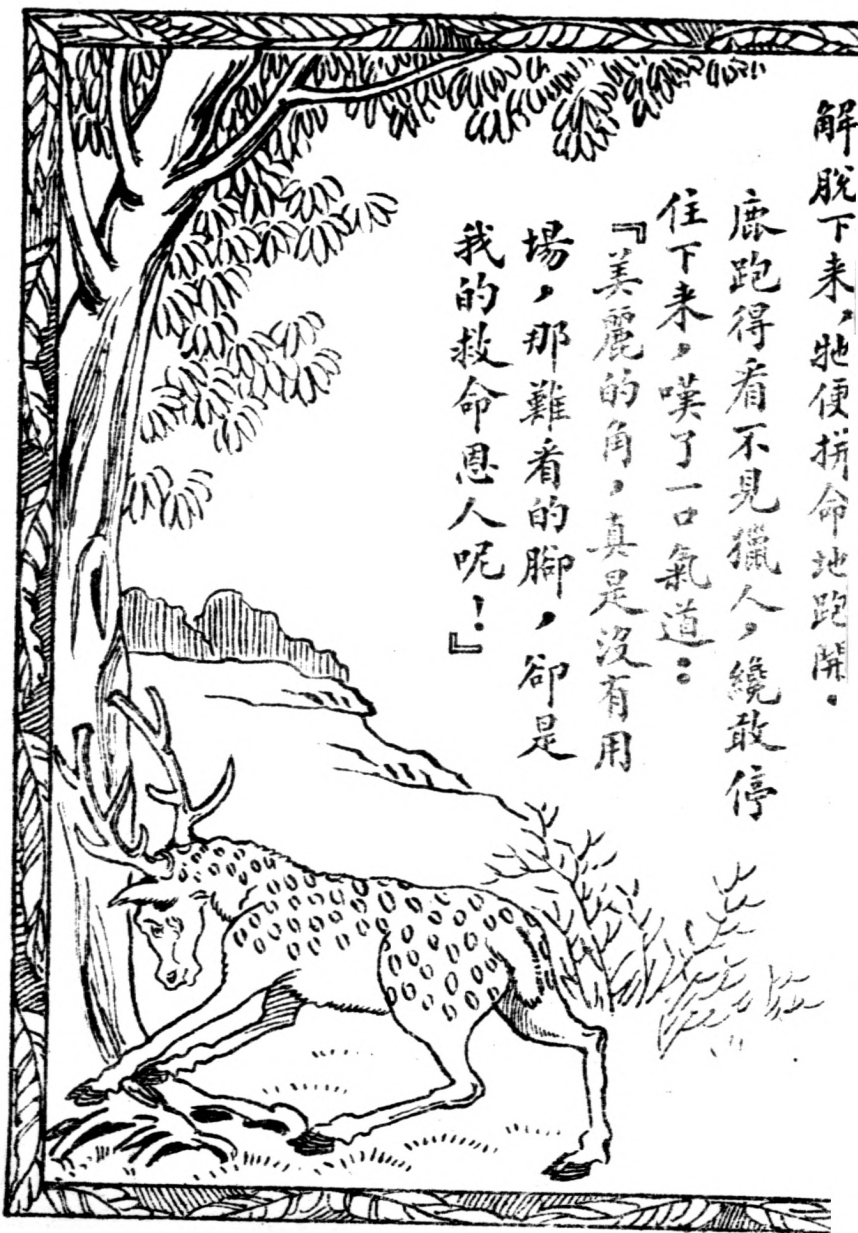 解脫下来，牠便拼命地跑開。
鹿跑得看不見獵人，纔敢停
住下来，嘆了一口氣道：
『美麗的角，真是沒有用
場，那難看的腳，卻是
我的救命恩人呢！』